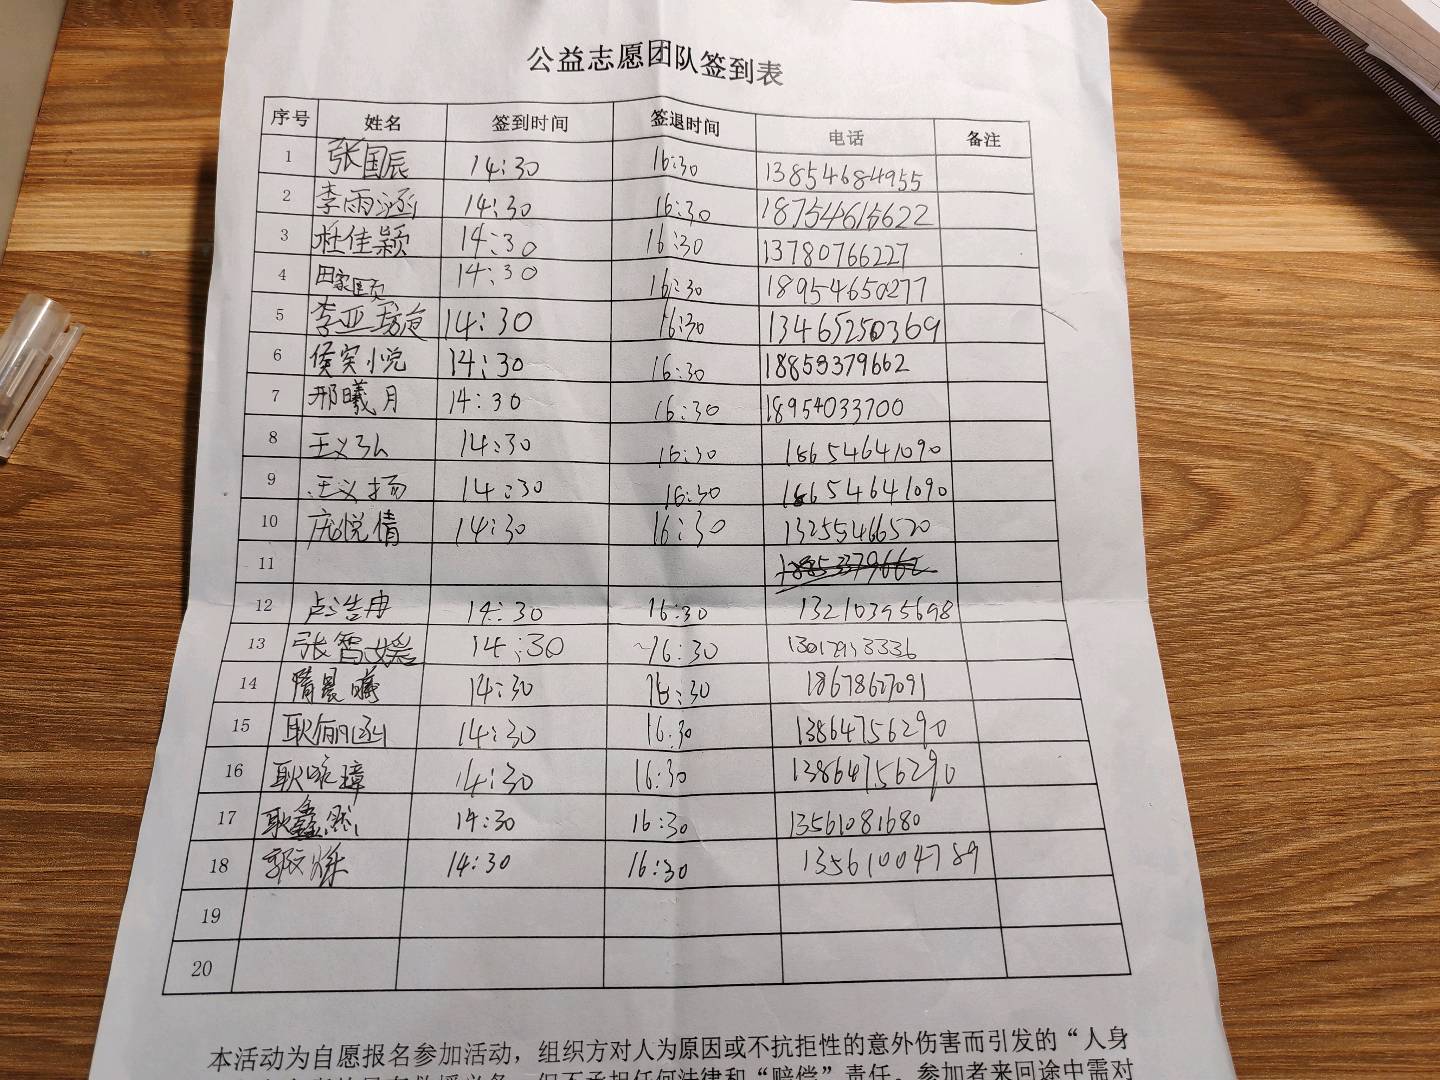 公益志愿团队签到表
序号 姓名 签到时间 签退时间 电话 备注
1 张国辰 14:30 16:30 13854684955
2 李雨涵 14:30 16:30 18754615622
3 杜佳颖 14:30 16:30 13780766227
4 田家顾 14:30 16:30 18954650277
5 李亚璇 14:30 16:30 13465250369
6 侯奕小悦 14:30 16:30 18859379662
7 邢曦月 14:30 16:30 18954033700
8 王义弘 14:30 16:30 18654641090
9 王义扬 14:30 16:30 18654641090
10 庞悦倩 14:30 16:30 13255466520
11 18853379662
12 卢浩冉 14:30 16:30 13210395698
13 张智媛 14:30 16:30
14 隋晨曦 14:30 16:30 18678627091
15 耿俪函 14:30 16:30 13864756290
16 耿咏璋 14:30 16:30 13864756290
17 耿鑫 14:30 16:30 13561081680
18 14:30 16:30 13561004789
19
20
本活动为自愿报名参加活动，组织方对人为原因或不抗拒性的意外伤害而引发的“人身
但不承担任何法律和“赔偿”责任。参加者来回途中需对